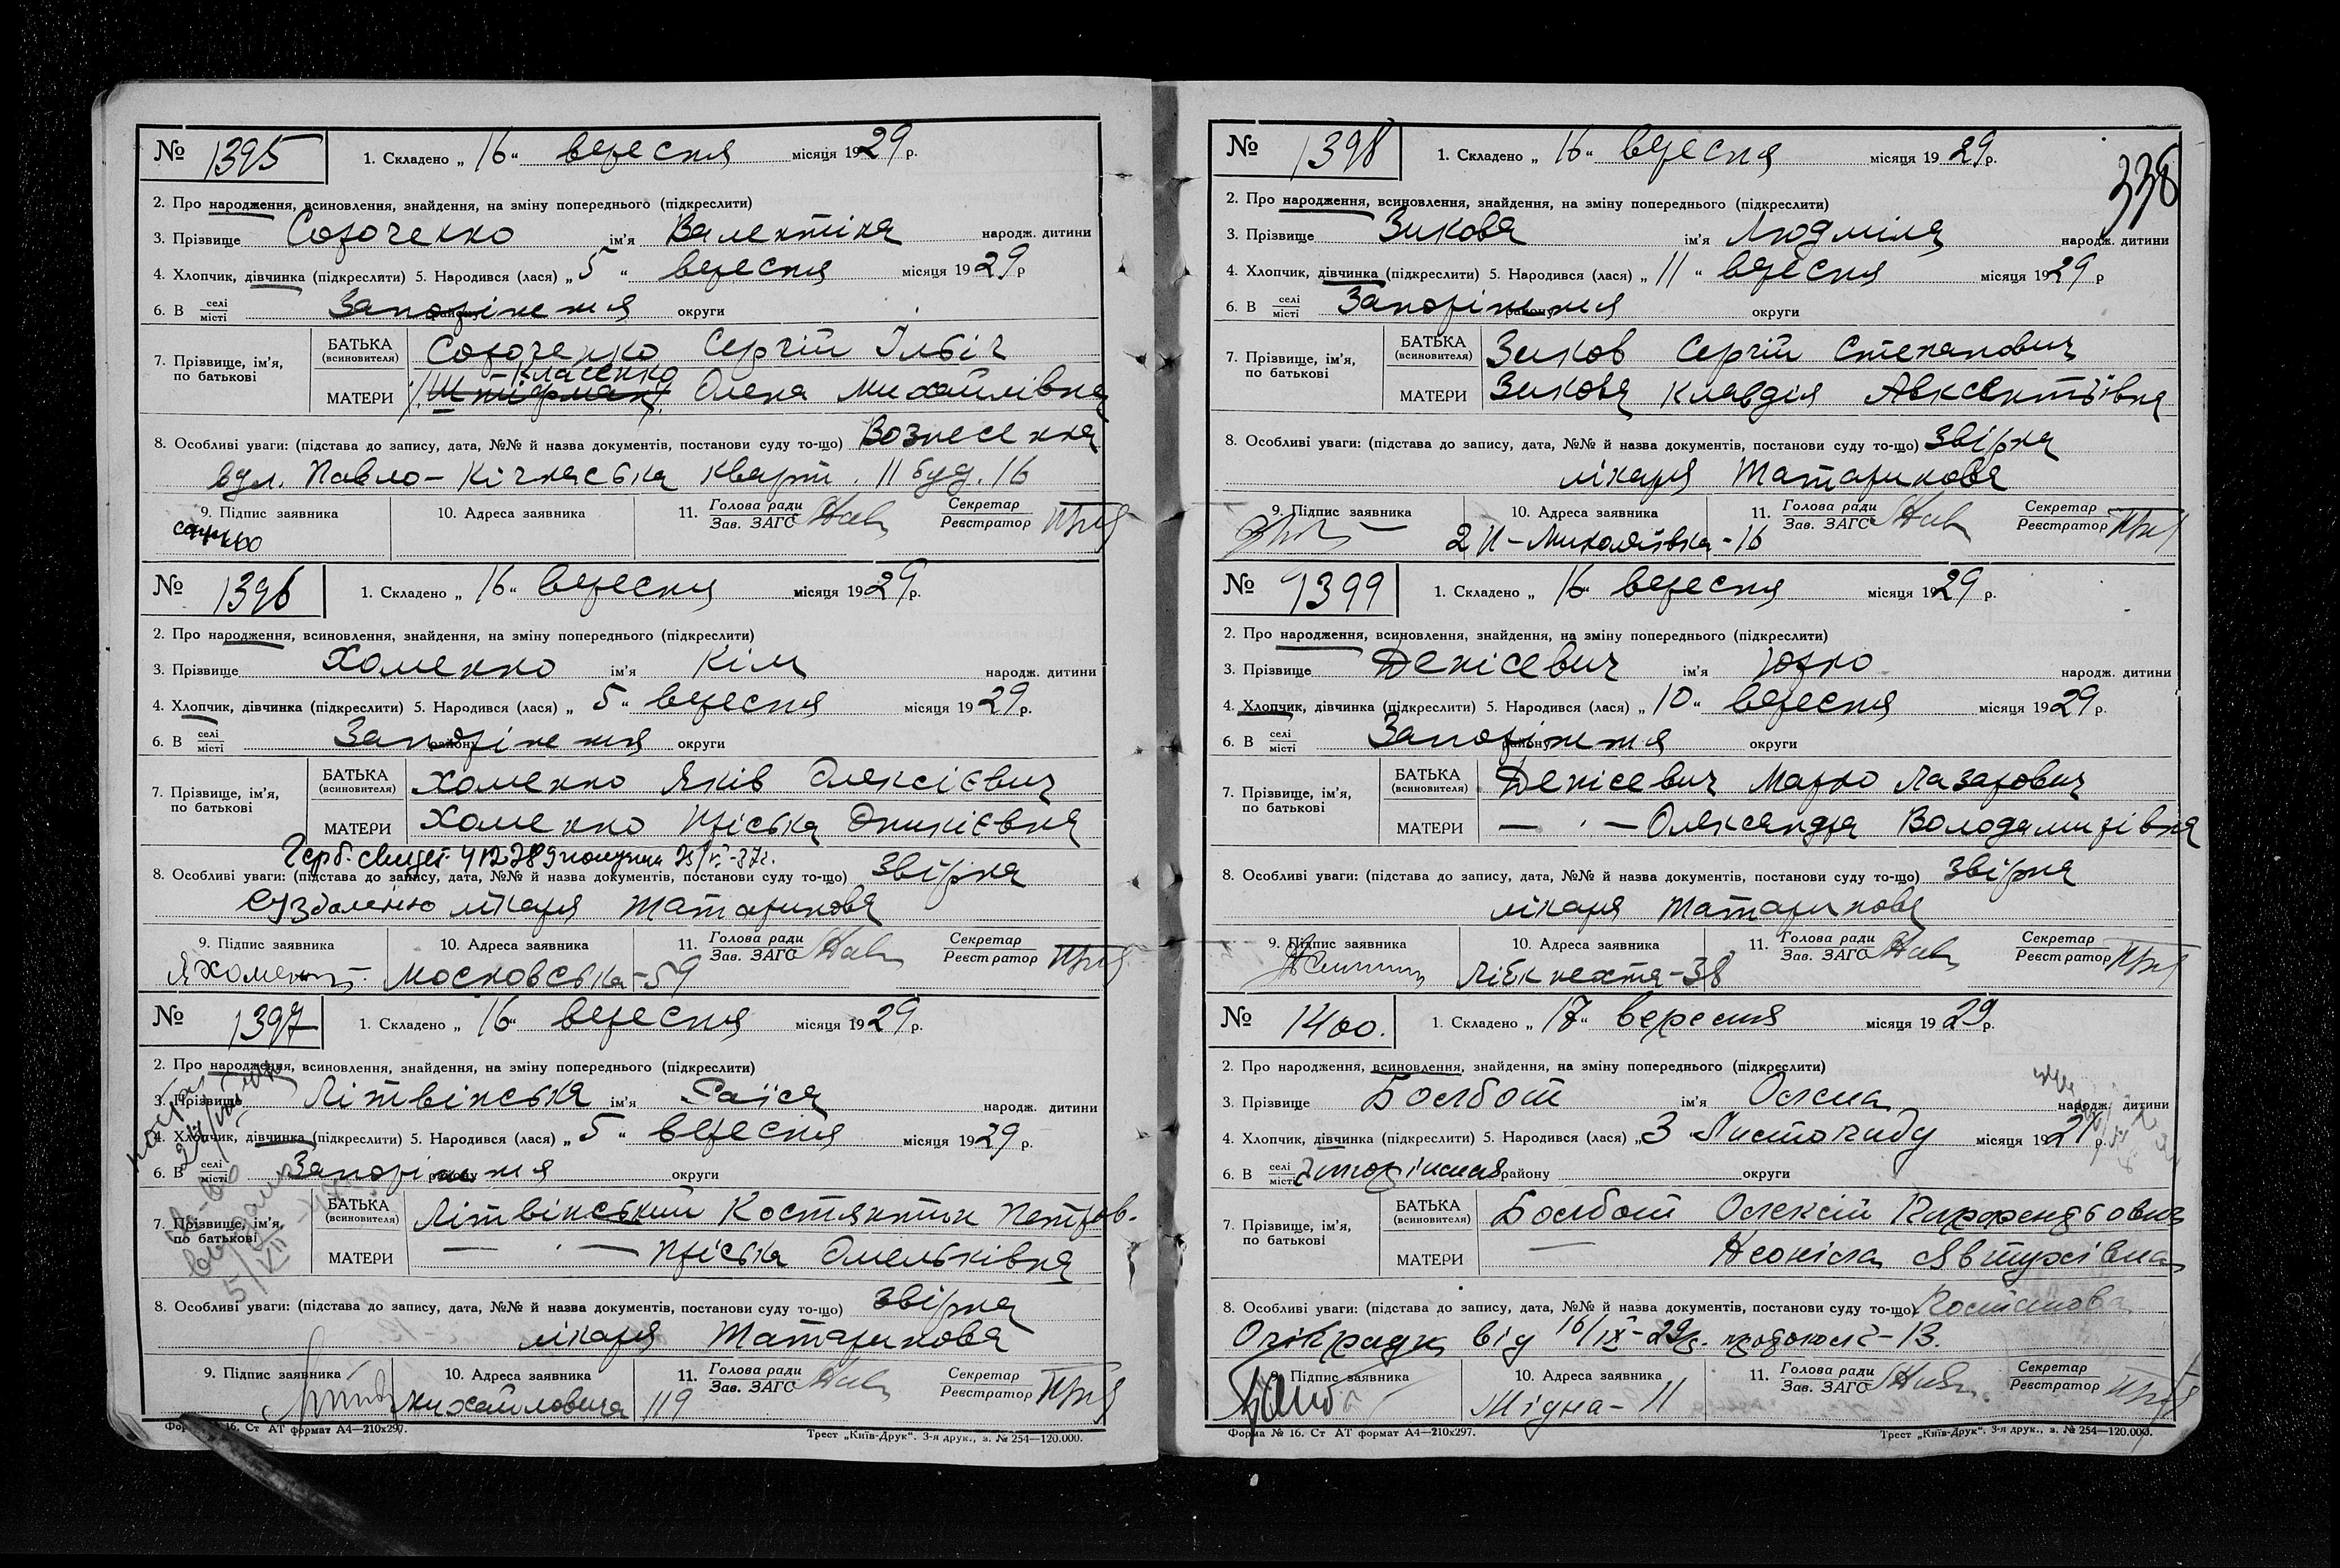 № 1395 1. Складено „ 16 “ вересня місяця 1929 р.
2. Про народження, всиновлення, знайдення, на зміну попереднього (підкреслити)
3. Прізвище Сороченко ім’я Валентіна народж. дитини
4. Хлопчик, дівчинка (підкреслити) 5. Народився (лася) „ 5 “ вересня місяця 1929 р
6. В селі місті Запоріжжя району округи
7. Прізвище, ім’я, по батькові
БАТЬКА (всиновителя) Сороченко Сергій Ільіч
Класенко
МАТЕРИ Олена Михайлівна
8. Особливі уваги: (підстава до запису, дата, №№ й назва документів, постанови суду то-що) Вознесенка
вул. Павло-Кічкаська кварт. 11 буд. 16
9. Підпис заявника 10. Адреса заявника 11. Голова ради Зав. ЗАГС Секретар Реєстратор
№ 1396 1. Складено „ 16 “ вересня місяця 1929 р.
2. Про народження, всиновлення, знайдення, на зміну попереднього (підкреслити)
3. Прізвище Хоменко ім’я Кім народж. дитини
4. Хлопчик, дівчинка (підкреслити) 5. Народився (лася) „ 5 “ вересня місяця 1929 р.
6. В селі місті Запоріжжя району округи
7. Прізвище, ім’я, по батькові
БАТЬКА (всиновителя) Хоменко Яків Олексієвич
МАТЕРИ Хоменко Пріська Оникієвна
8. Особливі уваги: (підстава до запису, дата, №№ й назва документів, постанови суду то-що) звірка
лікаря Татаринова
9. Підпис заявника 10. Адреса заявника 11. Голова ради Зав. ЗАГС Секретар Реєстратор
ЯХоменко Московська-59
№ 1397 1. Складено „ 16 “ вересня місяця 1929 р.
2. Про народження, всиновлення, знайдення, на зміну попереднього (підкреслити)
3. Прізвище Літвінська ім’я Раїса народж. дитини
4. Хлопчик, дівчинка (підкреслити) 5. Народився (лася) „ 5 “ вересня місяця 1929 р.
6. В селі місті Запоріжжя району округи
7. Прізвище, ім’я, по батькові
БАТЬКА (всиновителя) Літвінський Костянтин Петров.
МАТЕРИ — " — Пріська Омельківна
8. Особливі уваги: (підстава до запису, дата, №№ й назва документів, постанови суду то-що) звірка
лікаря Татаринова
9. Підпис заявника 10. Адреса заявника 11. Голова ради Зав. ЗАГС Секретар Реєстратор
Михайловича 119
Форма № 16. Ст АТ формат А4—210х297. Трест „Київ-Друк“. 3-я друк., з. № 254—120.000.
338
№ 1398 1. Складено „ 16 “ вересня місяця 1929 р.
2. Про народження, всиновлення, знайдення, на зміну попереднього (підкреслити)
3. Прізвище Зикова ім’я Людміла народж. дитини
4. Хлопчик, дівчинка (підкреслити) 5. Народився (лася) „ 11 “ вересня місяця 1929 р
6. В селі місті Запоріжжя району округи
7. Прізвище, ім’я, по батькові
БАТЬКА (всиновителя) Зиков Сергій Степанович
МАТЕРИ Зикова Клавдія Авксентьївна
8. Особливі уваги: (підстава до запису, дата, №№ й назва документів, постанови суду то-що) звірка
лікаря Татаринова
9. Підпис заявника 10. Адреса заявника 11. Голова ради Зав. ЗАГС Секретар Реєстратор
2 И-Миколаївка-16
№ 1399 1. Складено „ 16 “ вересня місяця 1929 р.
2. Про народження, всиновлення, знайдення, на зміну попереднього (підкреслити)
3. Прізвище Денісевич ім’я Юрко народж. дитини
4. Хлопчик, дівчинка (підкреслити) 5. Народився (лася) „ 10 “ вересня місяця 1929 р.
6. В селі місті Запоріжжя району округи
7. Прізвище, ім’я, по батькові
БАТЬКА (всиновителя) Денісевич Марко Лазарович
МАТЕРИ — " — Олександра Володимирівна
8. Особливі уваги: (підстава до запису, дата, №№ й назва документів, постанови суду то-що) звірка
лікаря Татаринова
9. Підпис заявника 10. Адреса заявника 11. Голова ради Зав. ЗАГС Секретар Реєстратор
Лібкнехта-38
№ 1400. 1. Складено „ 17 “ вересня місяця 1929 р.
2. Про народження, всиновлення, знайдення, на зміну попереднього (підкреслити)
3. Прізвище Болбот ім’я Олена народж. дитини
4. Хлопчик, дівчинка (підкреслити) 5. Народився (лася) „ 3 Листопаду місяця 1921 р.
6. В селі місті Запоріжжя району округи
7. Прізвище, ім’я, по батькові
БАТЬКА (всиновителя) Болбот Олексій
МАТЕРИ — Неоніла Явтухівна
8. Особливі уваги: (підстава до запису, дата, №№ й назва документів, постанови суду то-що) Постанова
Опікради від 16/ІХ-29р. протокол-13.
9. Підпис заявника 10. Адреса заявника 11. Голова ради Зав. ЗАГС Секретар Реєстратор
Мідна-11
Форма № 16. Ст АТ формат А4—210х297. Трест „Київ-Друк“. 3-я друк., з. № 254—120.000.